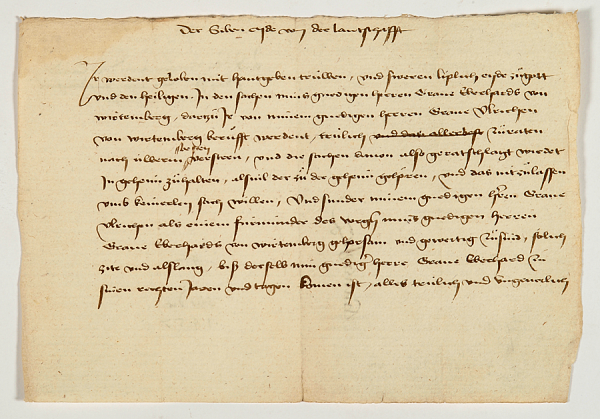 Der Siben eyde von der lantschafft
Ir werdent geloben mit hantgeben trüwen, und sweren liplich eyde zü gott
und den heiligen. In den sachen mins gnedigen herren Grave Eberhards von
wirtemberg, dartzü Ir von minem gnedigen herren Grave Ulrichen
von wirtemberg berüfft werdent, trülich und das allerbest zü raten
nach üwerm besten versteen, und die sachen davon also geratschlagt wirdet
In geheim zü halten, alsvil der zü der geheim gehören, und das nit zü lassen
umb keinerley sach willen, Und sunder minem gnedigen hern Grave
Ulrichen als einem fürmünder des mins gnedigen herren
Grave Eberhards von wirtemberg gehorsam und gewertig zü sind, solich
zite und alslang, biß derselb min gnedig herre Grave Eberhard zü
sinen rechten Jaren und tagen komen ist, alles trülich und ungeverlich